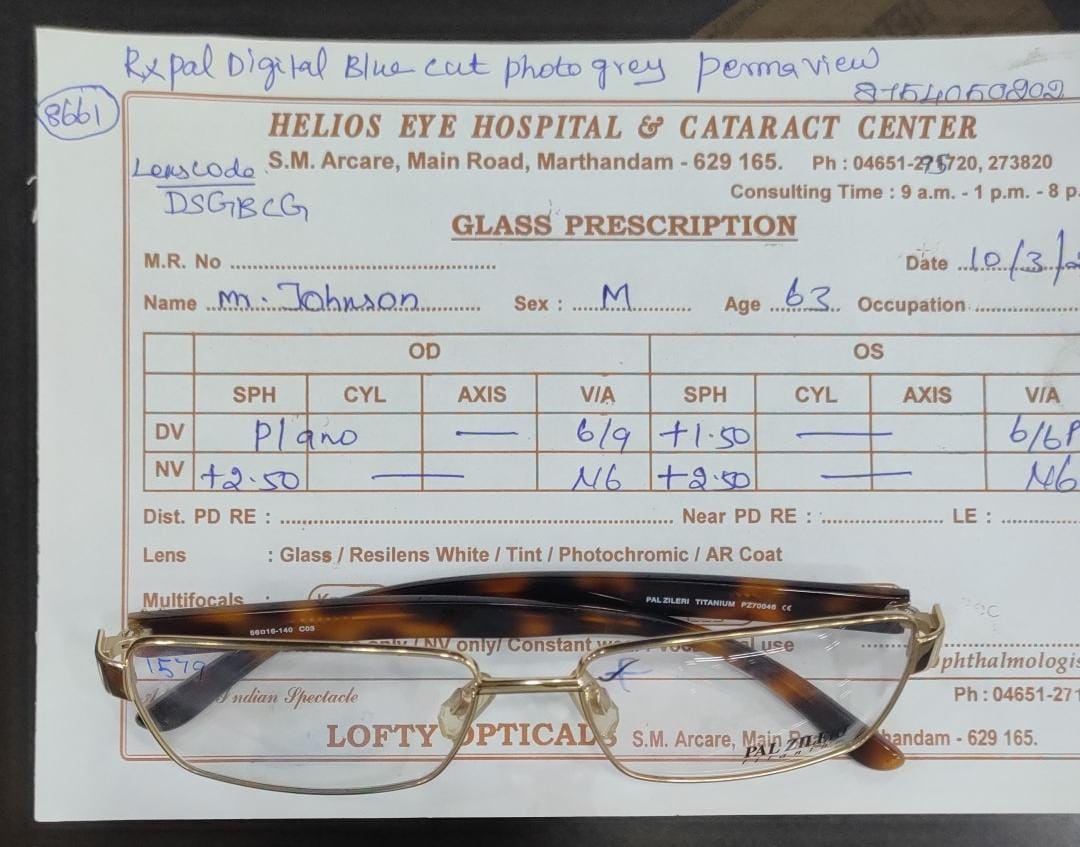 Rx pal Digital Blue cut photo grey permaview
8661
8754050202
HELIOS EYE HOSPITAL & CATARACT CENTER
S.M. Arcare, Main Road, Marthandam - 629 165. Ph : 04651-275720, 273820
Lenscode
DSGBCG
Consulting Time : 9 a.m. - 1 p.m. - 8 p.
GLASS PRESCRIPTION
M.R. No Date 10/3/2
Name Mr. Johnson Sex : M Age 63 Occupation
OD OS
SPH CYL AXIS V/A SPH CYL AXIS V/A
DV Plano — 6/9 +1.50 — 6/6P
NV +2.50 — N6 +2.50 — N6
Dist. PD RE : Near PD RE : LE :
Lens : Glass / Resilens White / Tint / Photochromic / AR Coat
Multifocals :
PAL ZILERI TITANIUM PZ70046 CE
56□16-140 C03
/ NV only/ Constant use
1579
Indian Spectacle
Ophthalmologis
Ph : 04651-271
LOFTY OPTICALS S.M. Arcare, Main handam - 629 165.
PAL ZILERI